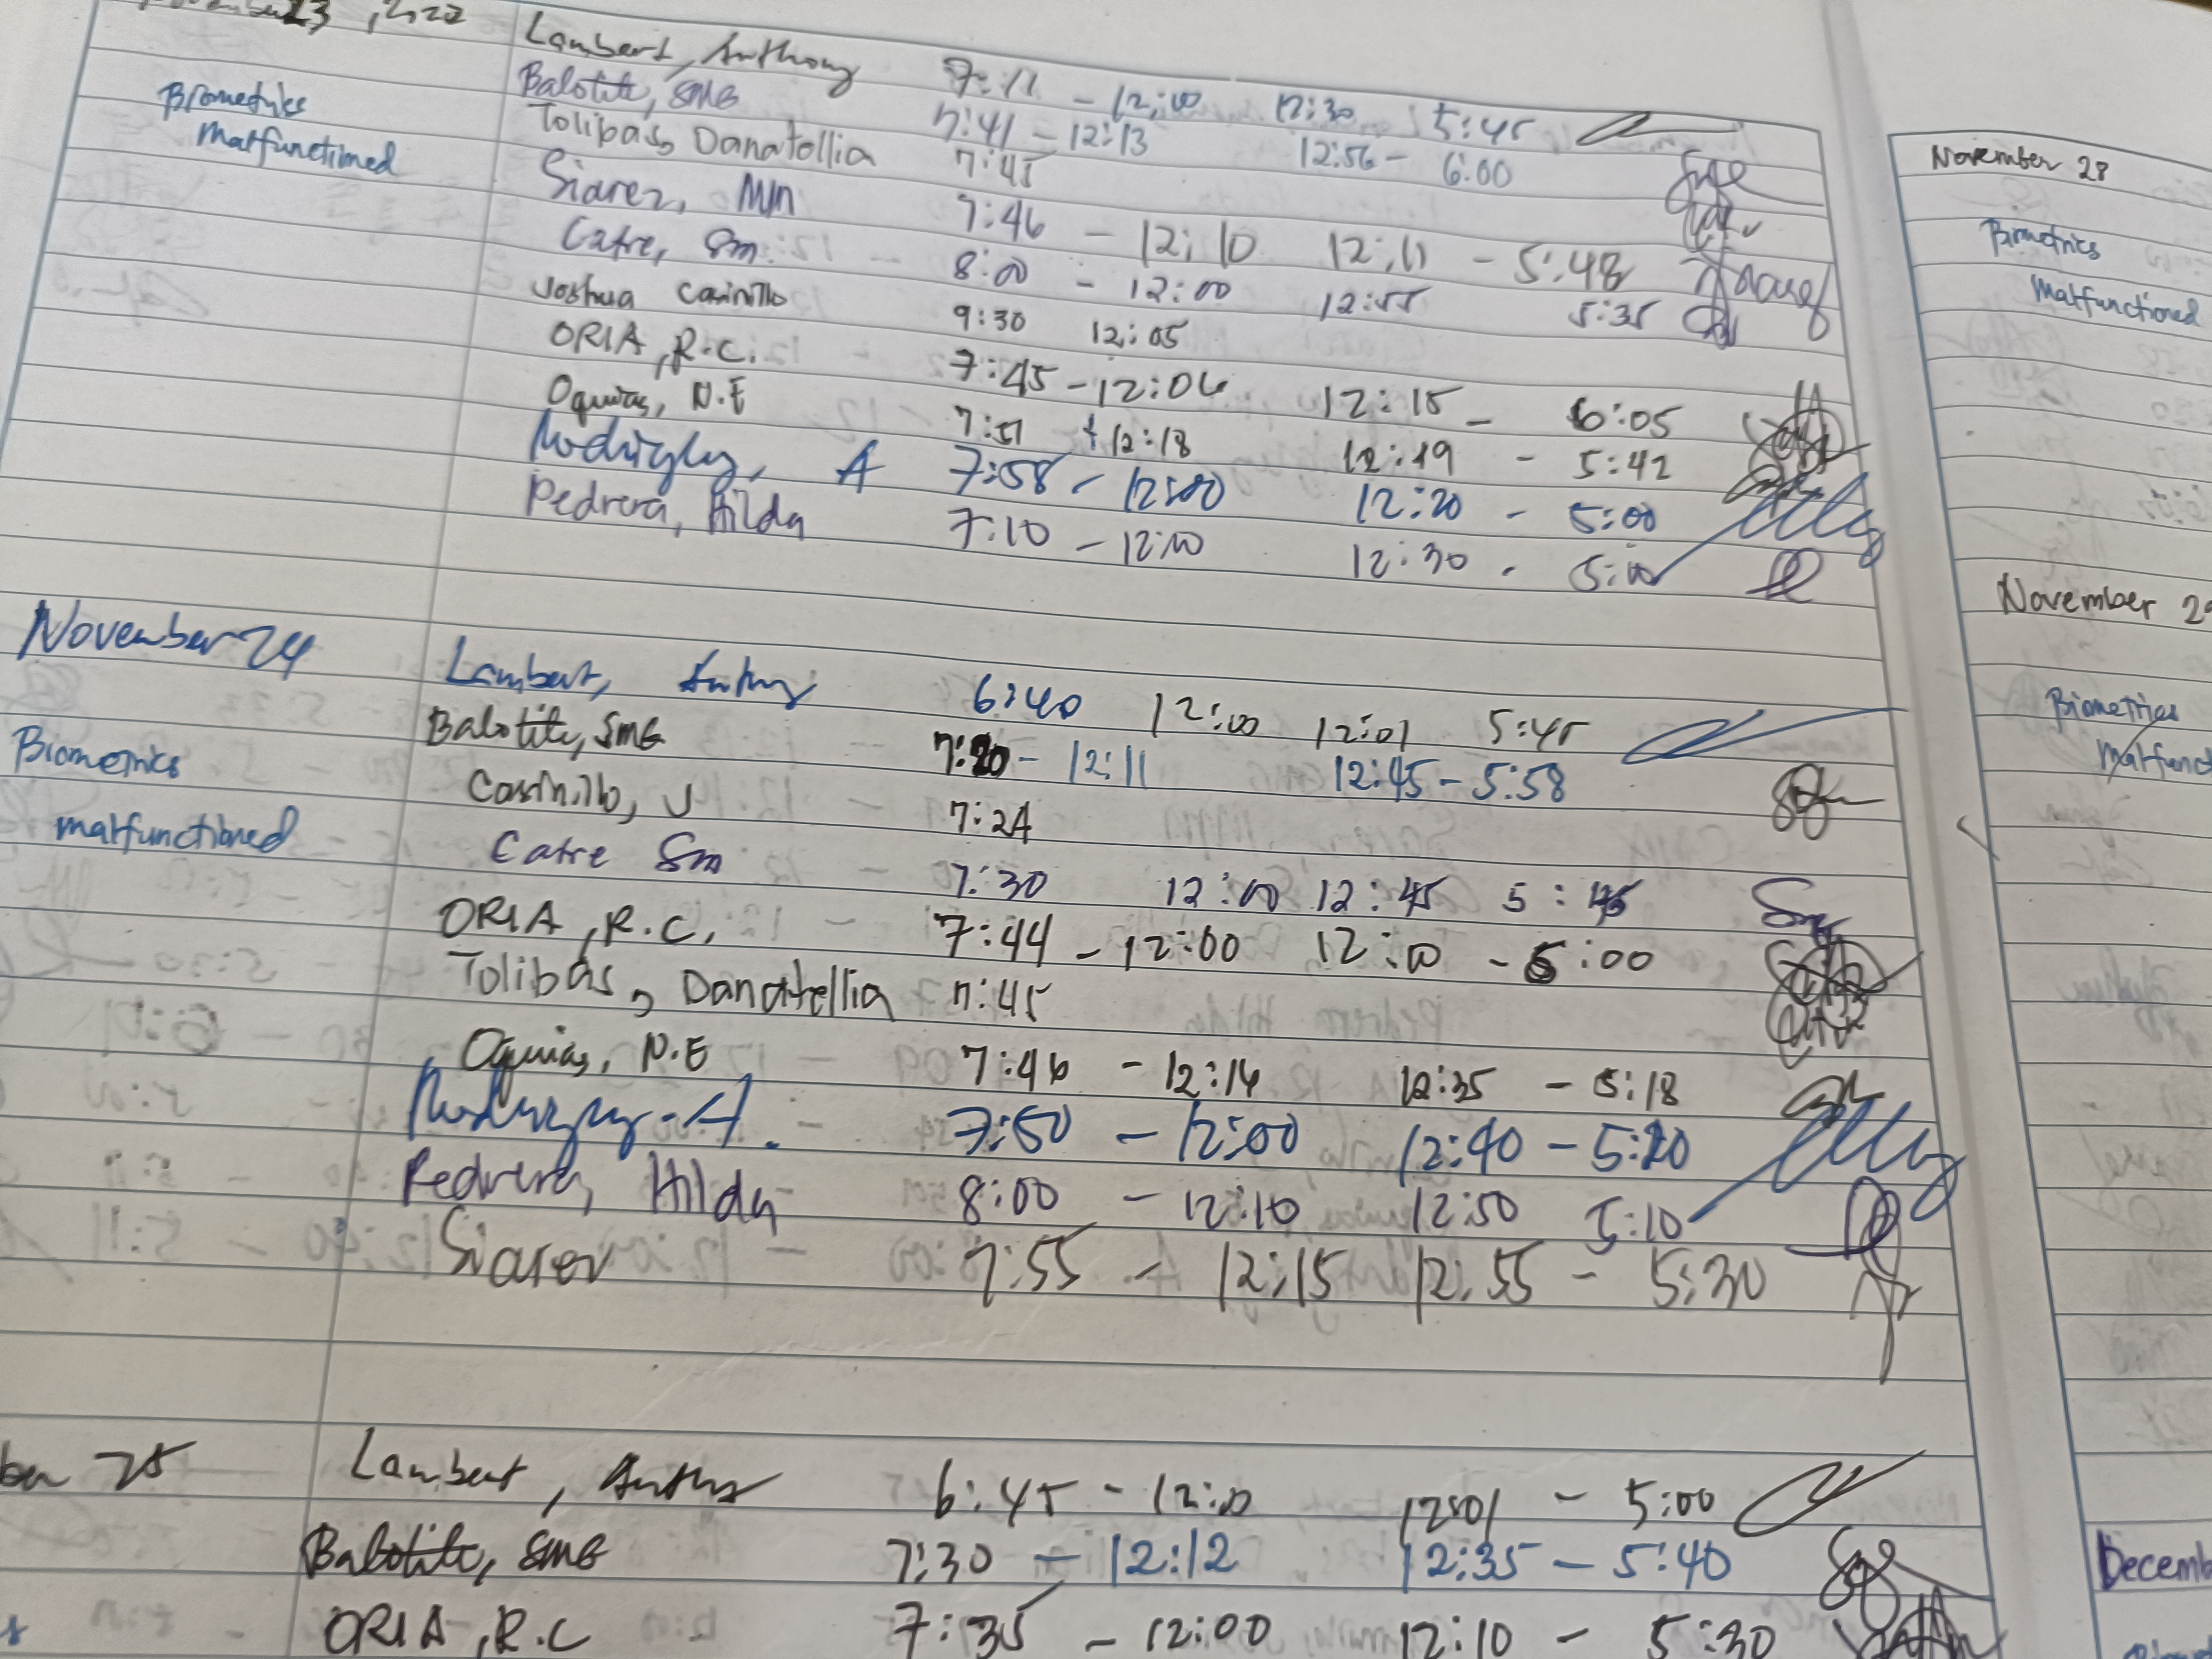 23, 2022 Lambert, Anthony 7:11 - 12:00 12:30 5:45
Balotite, SMG 7:41 - 12:13 12:56 - 6:00
Biometrics Tolibas, Danatellia 7:45
malfunctioned Siarez, MM 7:46 - 12:10 12:11 - 5:48
Catre, Sm 8:00 - 12:00 12:55 5:35
Joshua Casinillo 9:30 12:05
ORIA, R.C. 7:45 - 12:04 12:15 - 6:05
Oquias, N.E 7:51 12:18 12:19 - 5:42
A 7:58 - 12:00 12:20 - 5:00
Pedrera, Hilda 7:10 - 12:00 12:30 - 5:00
November 24 Lambert, Anthony 6:40 12:00 12:01 5:45
Balotite, SMG 7:20 - 12:11 12:45 - 5:58
Biometrics Casinillo, J 7:24
malfunctioned Catre Sm 7:30 12:00 12:45 5:45
ORIA, R.C. 7:44 - 12:00 12:10 - 5:00
Tolibas, Danatellia 7:45
Oquias, N.E 7:46 - 12:14 12:35 - 5:18
A. 7:50 - 12:00 12:40 - 5:20
Pedrera, Hilda 8:00 - 12:10 12:50 5:10
Siarez 7:55 - 12:15 12:55 - 5:30
ber 25 Lambert, Anthony 6:45 - 12:00 12:01 - 5:00
Balotite, SMG 7:30 - 12:12 12:35 - 5:40
ORIA, R.C 7:35 - 12:00 12:10 - 5:30
November 28
Biometrics
malfunctioned
November 29
Biometrics
malfunct
Decemb